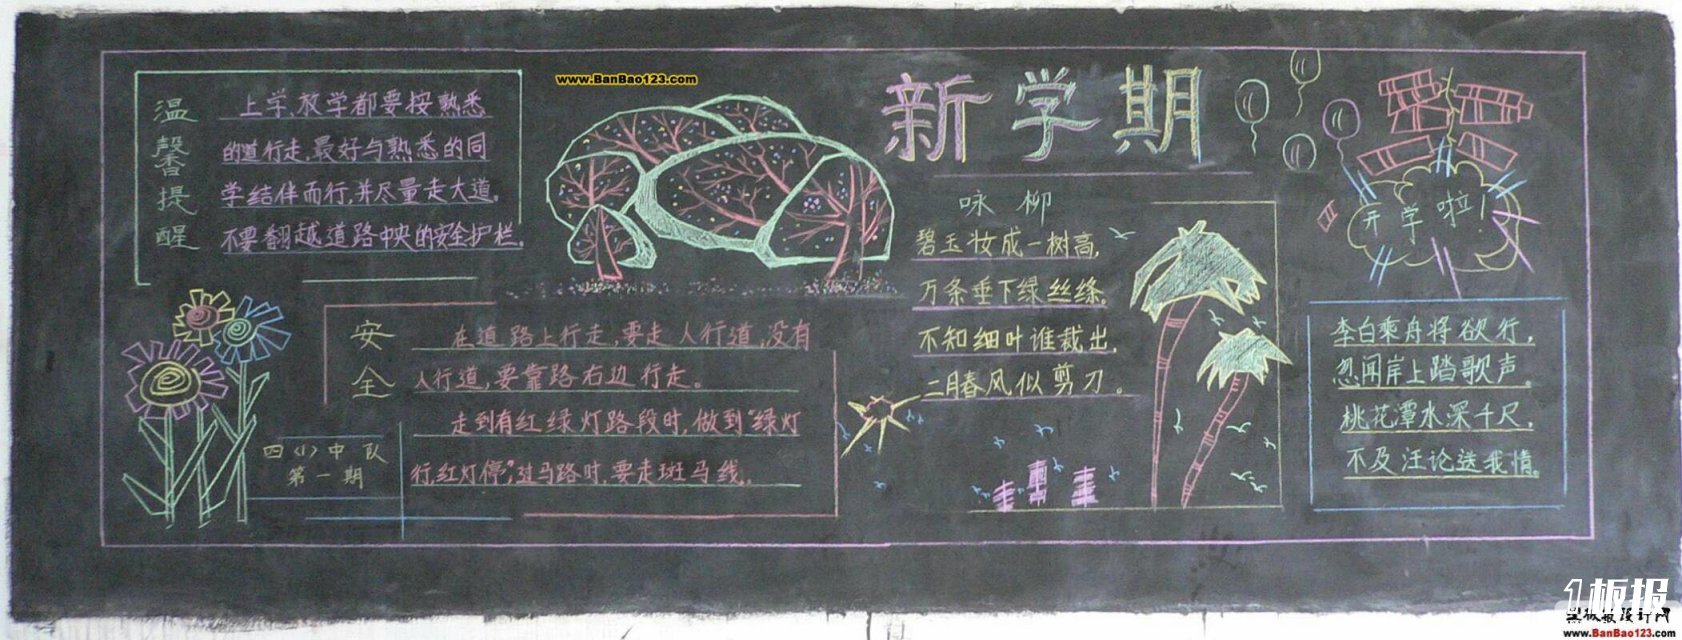 www.BanBao123.com
新学期
温馨提醒
上学、放学都要按熟悉
的道行走,最好与熟悉的同
学结伴而行,并尽量走大道。
不要翻越道路中央的安全护栏。
安全
在道路上行走,要走人行道,没有
人行道,要靠路右边行走。
走到有红绿灯路段时,做到“绿灯
行,红灯停”,过马路时,要走斑马线。
四(1)中队
第一期
咏柳
碧玉妆成一树高,
万条垂下绿丝绦。
不知细叶谁裁出,
二月春风似剪刀。
开学啦!
李白乘舟将欲行,
忽闻岸上踏歌声。
桃花潭水深千尺,
不及汪论送我情。
1板报
黑板报设计网
www.BanBao123.com